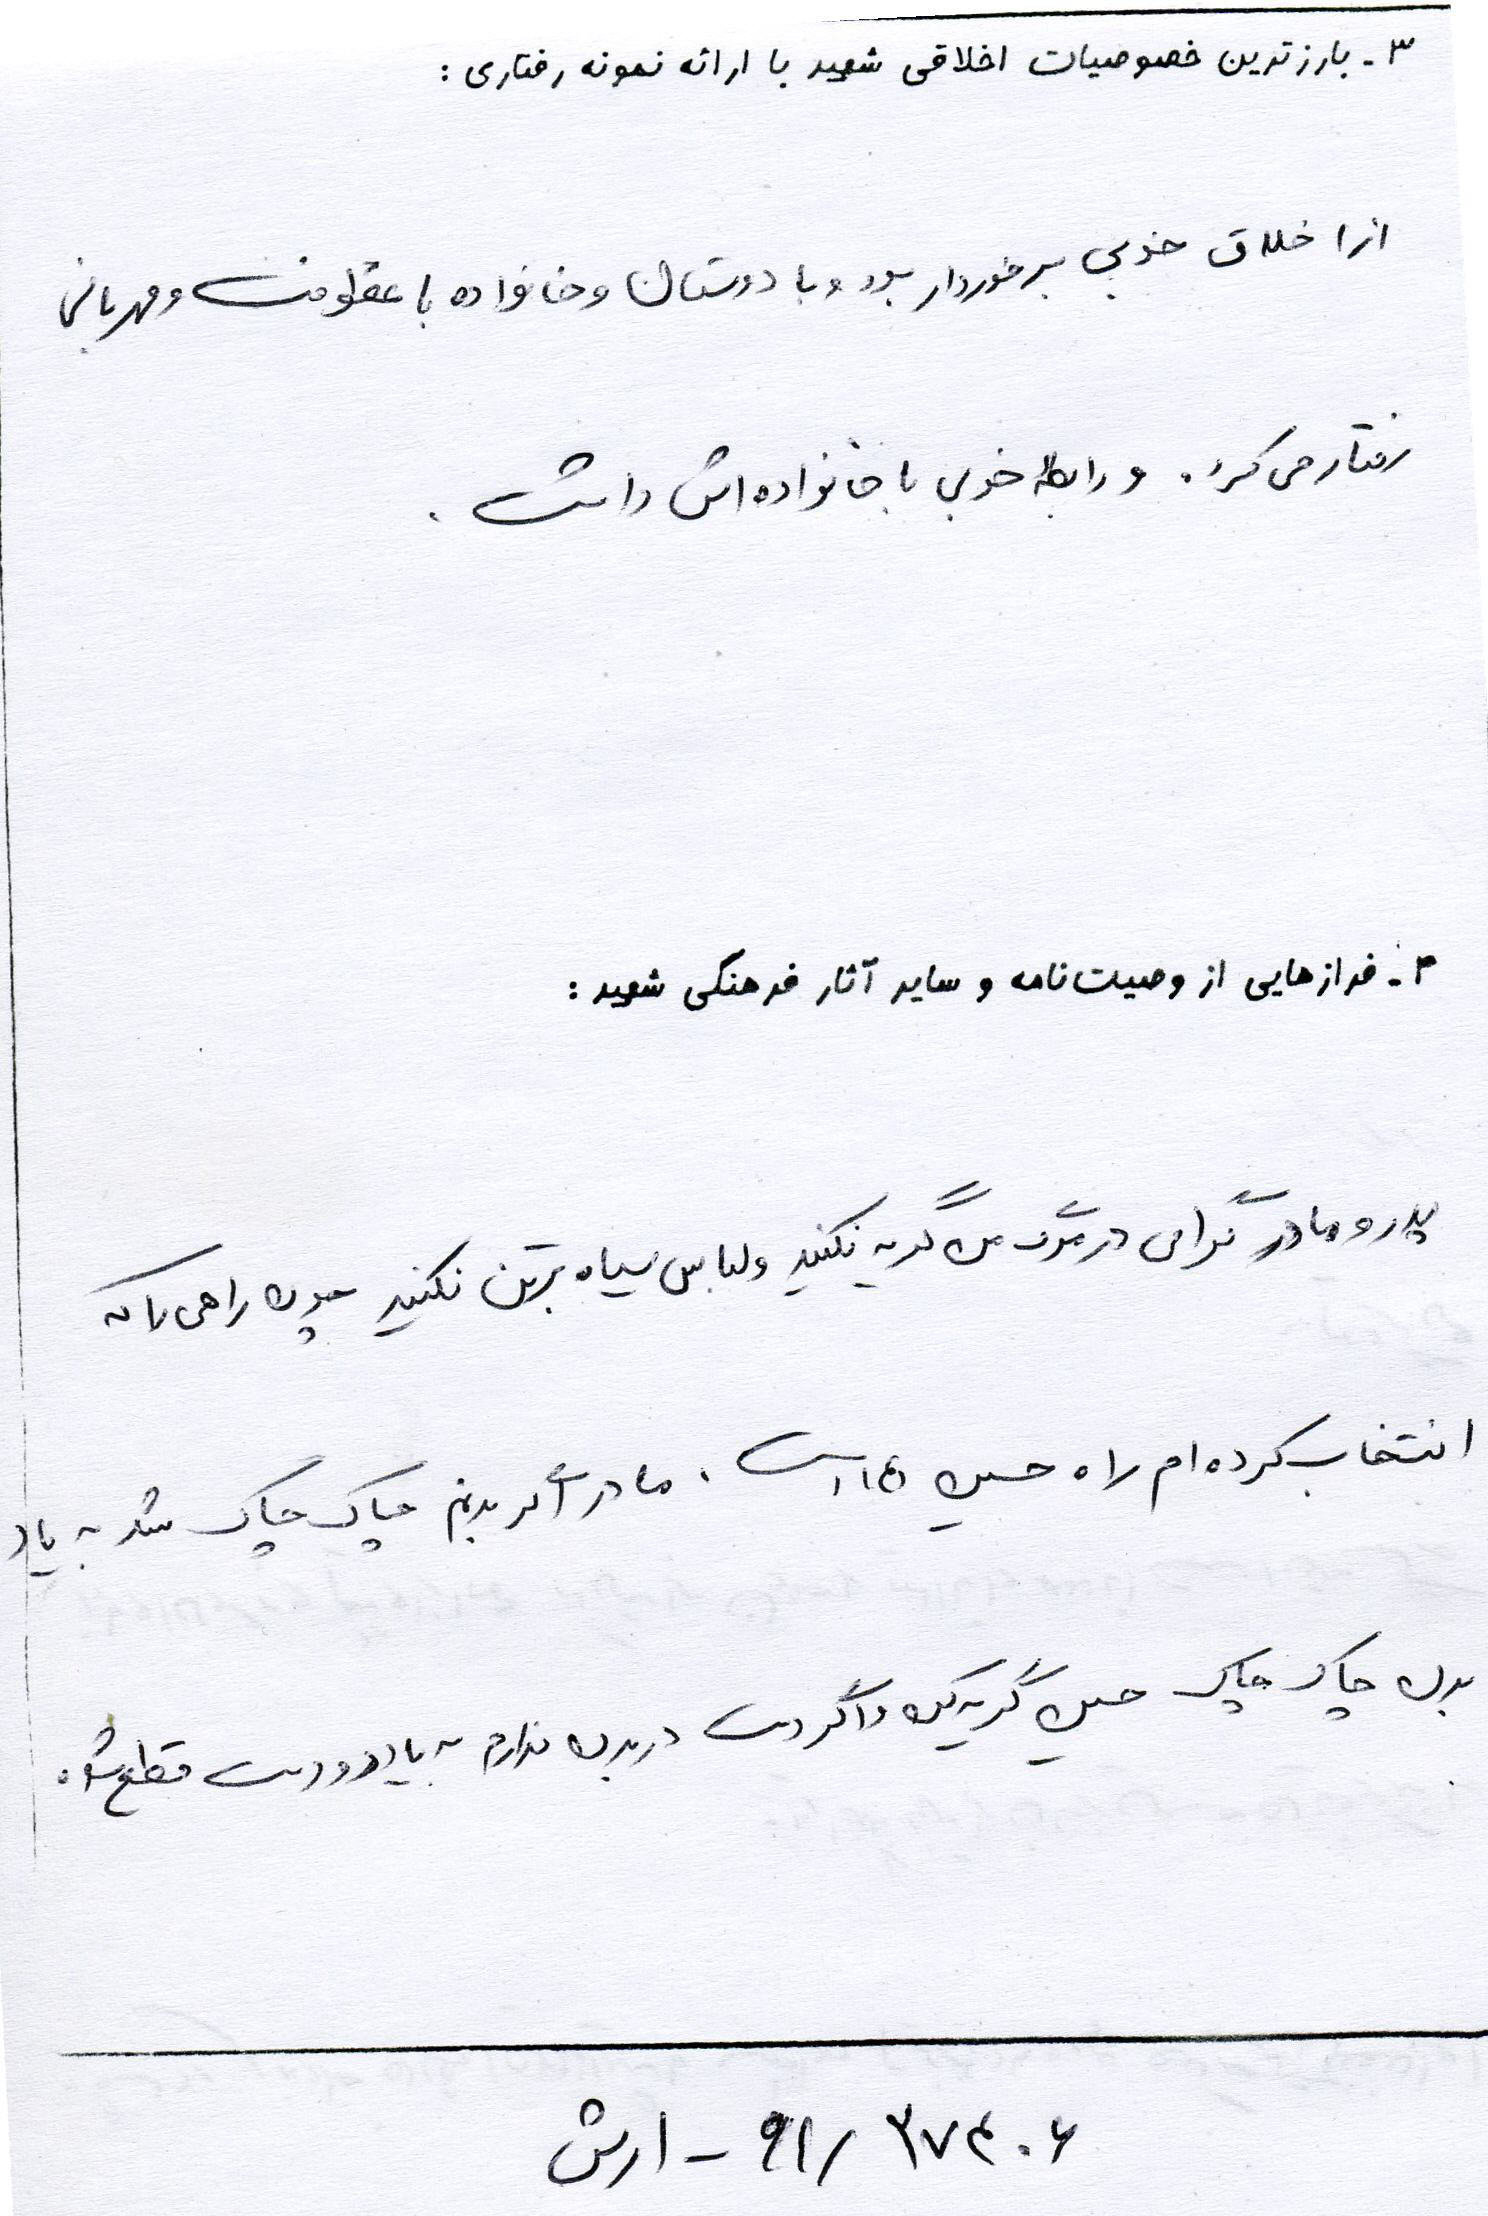 ۳ـ بارزترین خصوصیات اخلاقی شهید با ارائه نمونه رفتاری :
از اخلاق خوبی برخوردار بود و با دوستان و خانواده با عطوفت و مهربانی
رفتار می کرد . و رابطه خوبی با خانواده اش داشت .
۴ـ فرازهایی از وصیت‌نامه و سایر آثار فرهنگی شهید :
پدر و مادر گرامی در مرگ من گریه نکنید و لباس سیاه برتن نکنید چون راهی را که
انتخاب کرده ام راه حسین (ع) است . مادر اگر بدنم چاک چاک شد به یاد
بدن چاک چاک حسین گریه کن و اگر دست در بدن ندارم به یاد دو دست قطع شده
۹۱/۲۷۴۰۶ - ارش